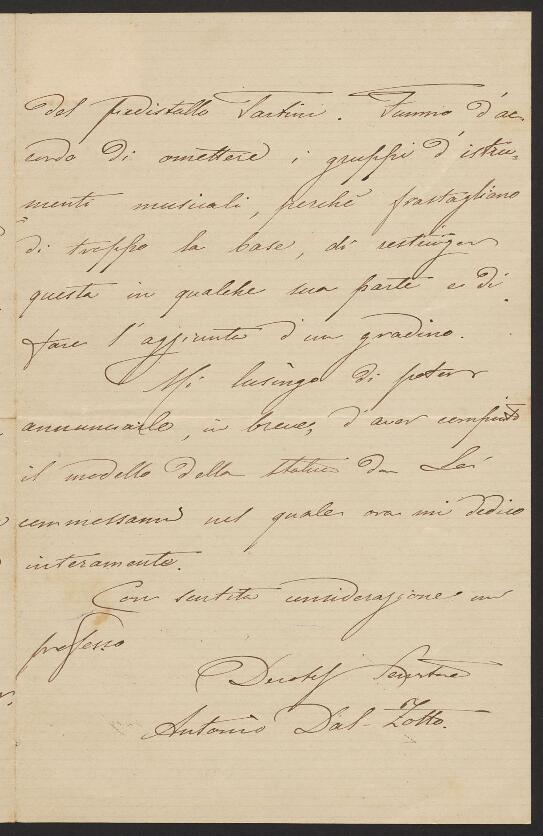 del piedistallo Tartini. Fummo d'ac-
cordo di omettere i gruppi d'istru-
menti musicali, perchè frastagliano
di troppo la base, di restringer
questa in qualche sua parte e di
fare l'aggiunta d'un gradino.
Mi lusingo di poter
annunciarle, in breve, d'aver compiuto
il modello della statua da Lei
commessami nel quale ora mi dedico
interamente.
Con sentita considerazione mi
professo
Devot. Servitore
Antonio Dal-Zotto.